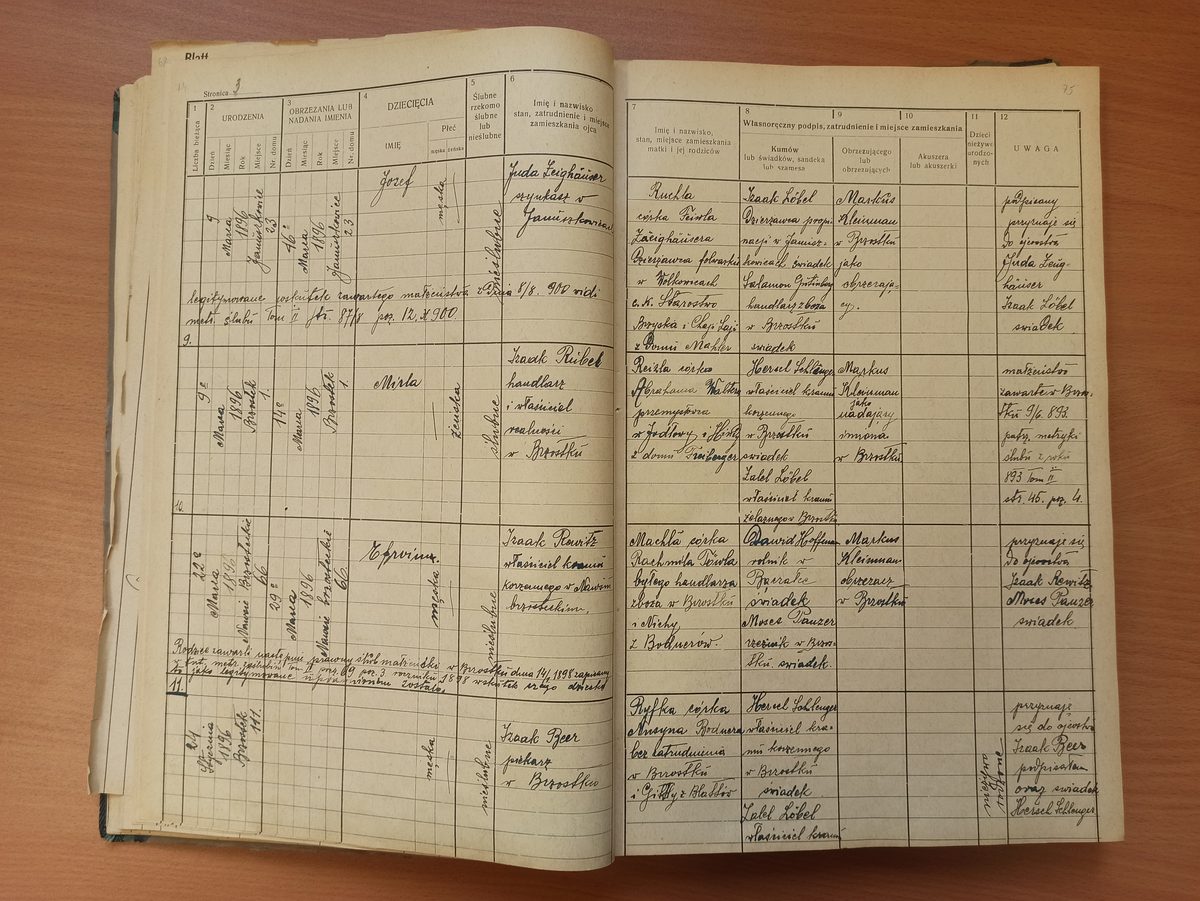 Blatt
Stronica 3
75
1
Liczba bieżąca
2
URODZENIA
Dzień
Miesiąc
Rok
Miejsce
Nr. domu
3
OBRZEZANIA LUB
NADANIA IMIENIA
Dzień
Miesiąc
Rok
Miejsce
Nr. domu
4
DZIECIĘCIA
IMIĘ
Płeć
męska żeńska
5
Ślubne
rzekomo
ślubne
lub
nieślubne
6
Imię i nazwisko
stan, zatrudnienie i miejsce
zamieszkania ojca
7
Imię i nazwisko,
stan, miejsce zamieszkania
matki i jej rodziców
8
9
10
Własnoręczny podpis, zatrudnienie i miejsce zamieszkania
Kumów
lub świadków, sandeka
lub szamesa
Obrzezującego
lub
obrzezujących
Akuszera
lub akuszerki
11
Dzieci
nieżywe
urodzo-
nych
12
UWAGA
9
Marca
1896
Januszkowice
23
16ª
Marca
1896
Januszkowice
23
Jozef
męska
nieślubne
Juda Leighäuser
szynkasz w
Januszkowicach
legitymowane wskutek zawartego małżeństwa z dnia 8/8. 900 vidi
metr. ślubu Tom II str. 87/8 poz. 12. R 900
Ruchla
córka Faivla
Zeighäusera
Dzierżawca folwarku
w Wolkowicach
c. k. Starostwo
Brzyska i Chaji Laji
z Domu Mahler
Izaak Löbel
Dzierżawca propi-
nacji w Janusz-
kowicach świadek
Salamon Gutenberg
handlarz zboża
w Brzostku
świadek
Markus
Kleinman
w Brzostku
jako
obrzezają-
cy.
podpisany
przyznaje się
do ojcostwa
Juda Zeug-
häuser
Izaak Löbel
świadek
9.
9ª
Marca
1896
Brzostek
1.
14ª
Marca
1896
Brzostek
1.
Mirla
żeńska
ślubne
Izaak Rübel
handlarz
i właściciel
realności
w Brzostku
Reizla córka
Abrahama Waltza
przemysłowca
w Jodłowy i Hindy
z domu Freiberger
Hersel Schlenger
właściciel kramu
korzennego
w Brzostku
świadek
Lalel Löbel
właściciel kramu
żelaznego w Brzostku
Markus
Kleinman
jako
nadający
imiona
w Brzostku
małżeństwo
zawarte w Brzos-
tku 9/6. 893.
patrz metryki
ślubu z roku
893 Tom II
str. 45. poz. 4.
10.
22ª
Marca
1896
Nawsie Brzosteckie
66
29ª
Marca
1896
Nawsie brzosteckie
66
Efroim
męska
nieślubne
Izaak Rewitz
właściciel kramu
korzennego w Nawsiu
brzosteckiem,
Rodzice zawarli następnie prawny ślub małżeński w Brzostku dna 14/1 1898 zapisany
jako legitymowane
Machla córka
Rachmila Faiwla
byłego handlarza
zboża w Brzostku
i Nichy
z Bodnerów.
Dawid Hoffman
rolnik w
Baczałce
świadek
Moses Panzer
rzeźnik w Brzos-
tku. świadek.
Markus
Kleinman
obrzezacz
w Brzostku
przyznaje się
do ojcostwa
Izaak Rewitz
Moses Panzer
świadek
11.
24
Stycznia
1896
Brzostek
141
męska
nieślubne
Izaak Beer
piekarz
w Brzostku
Ryfka córka
Ansyna Bodnera
bez zatrudnienia
w Brzostku
i Gitly z Blattów
Hersel Schlenger
właściciel kra-
mu korzennego
w Brzostku
świadek
Lalel Löbel
właściciel kramu
nieżywo
rodzone
przyznaje
się do ojcostwa
Izaak Beer
podpisałam
oraz świadek
Hersel Schlenger